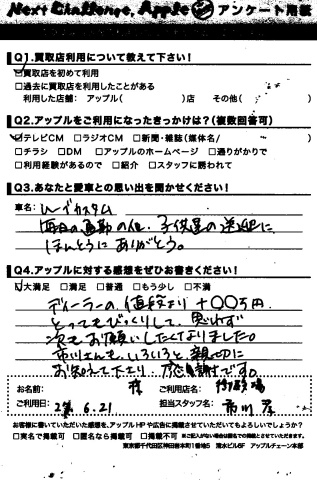 Next Challenge. Apple アンケート用紙
Q1.買取店利用について教えて下さい!
☑買取店を初めて利用
□過去に買取店を利用したことがある
利用した店舗: アップル( )店 その他( )
Q2.アップルをご利用になったきっかけは?(複数回答可)
☑テレビCM □ラジオCM □新聞・雑誌(媒体名/ )
□チラシ □DM □アップルのホームページ □通りがかりで
□利用経験があるので □紹介 □スタッフに誘われて
Q3.あなたと愛車との思い出を聞かせください!
車名:
毎日の通勤の他、子供達の送迎に
ほんとうにありがとう。
Q4.アップルに対する感想をぜひお書きください!
☑大満足 □満足 □普通 □もう少し □不満
ディーラーの、値段より +〇〇万円。
とってもびっくりして、思わず
次もお願いしたくなりました。
市川さんも、いろいろと、親切に
お知えて下さり、感謝です。
お名前: 様 ご利用店名:
ご利用日: 6.21 担当スタッフ名: 市川
お客様に書いていただいた感想を、アップルHPや広告に掲載させていただいてもよろしいでしょうか?
□実名で掲載可 □匿名なら掲載可 □掲載不可 ※ご記入がない場合は匿名での掲載とさせていただきます。
東京都千代田区神田岩本町1番地5 清水ビル5F アップルチェーン本部